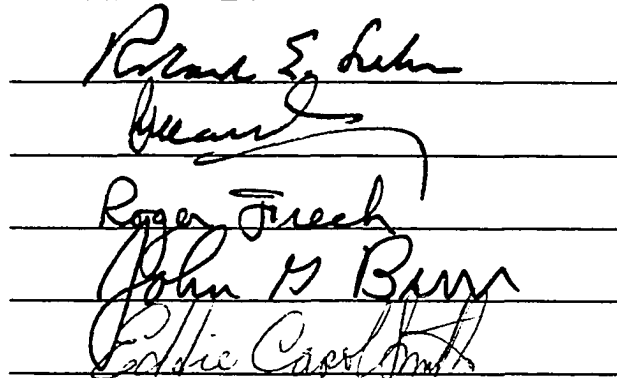 Roland E. Lehr
Roger Frech
John G Burr
Eddie Carol Smith